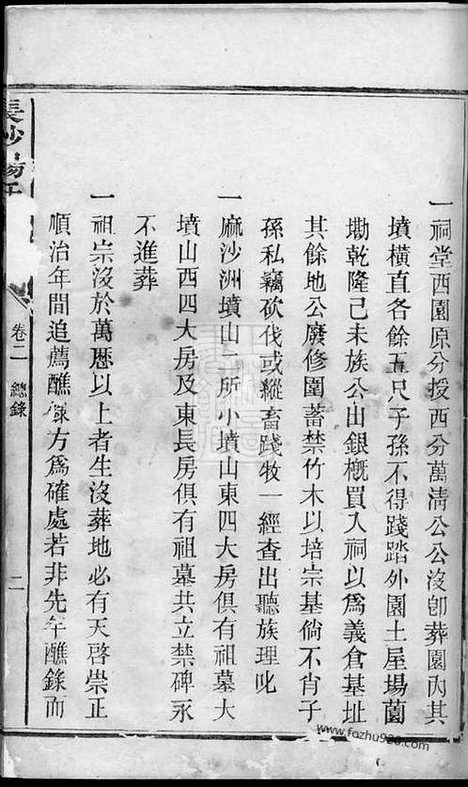 一祠堂西園原分授西分萬清公公沒卽葬園內其
墳橫直各餘五尺子孫不得踐踏外園土屋場蘭
墈乾隆己未族公出銀概買入祠以爲義倉基址
其餘地公廢修園蓄禁竹木以培宗基倘不肖子
孫私竊砍伐或縱畜踐牧一經查出聽族理叱
一麻沙洲墳山二所小墳山東四大房俱有祖墓大
墳山西四大房及東長房俱有祖墓共立禁碑永
不進葬
一祖宗沒於萬歷以上者生沒葬地必有天啓崇正
順治年間追薦醮錄方爲確處若非先年醮錄而
長沙
卷二 總錄 二
www.fozhu920.com